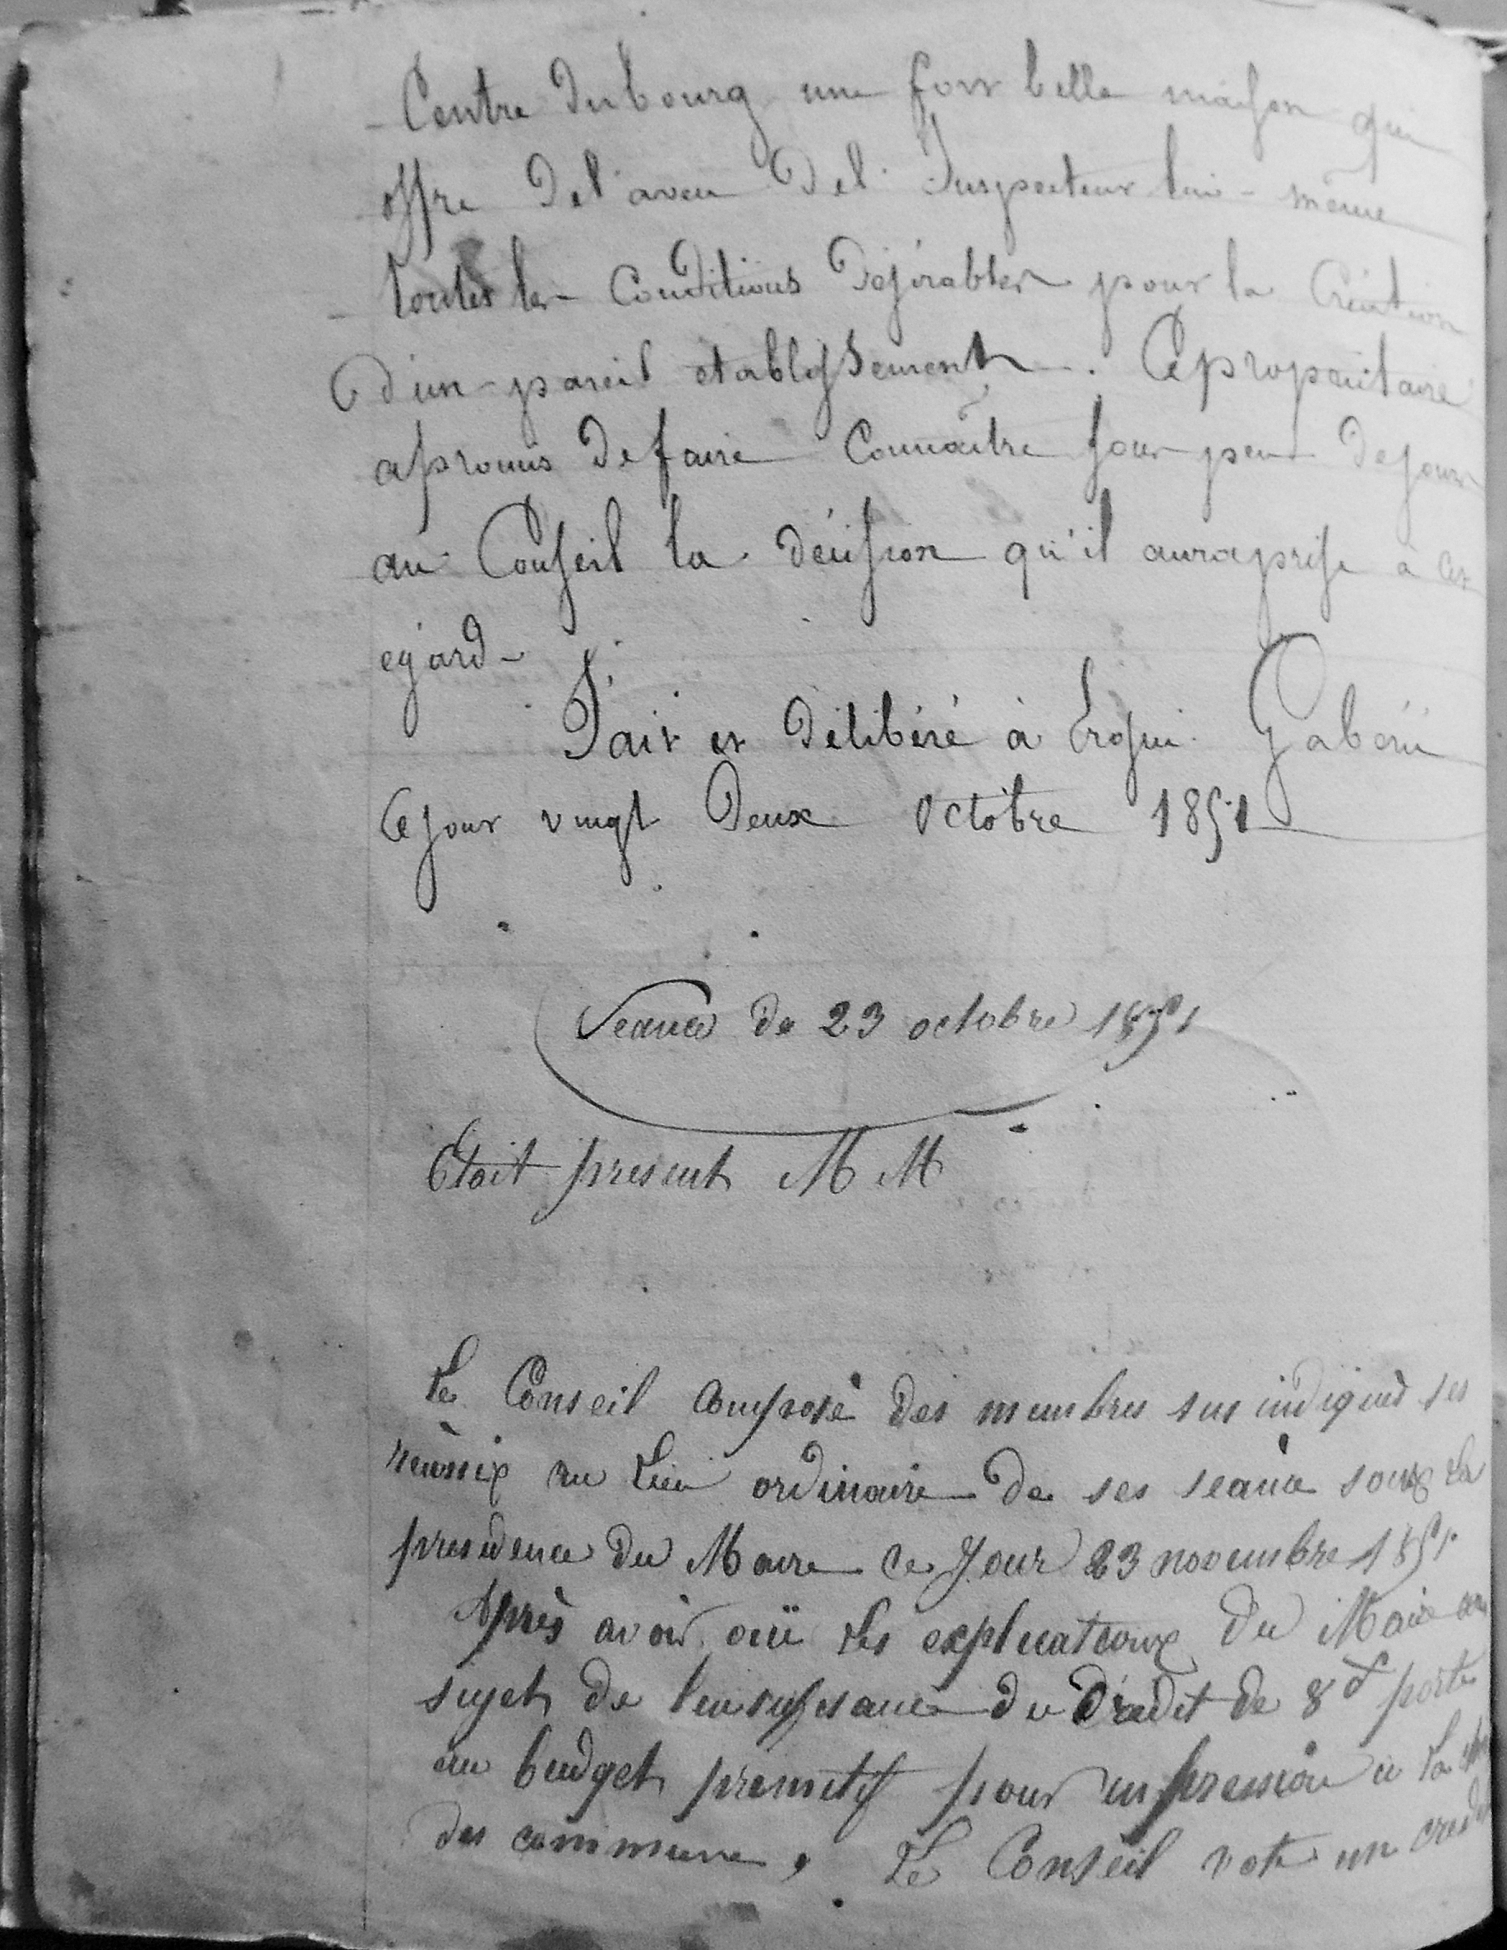 Centre du bourg une fort belle maison qui
offre de l'aveu de l'Inspecteur lui-même
toutes les conditions désirables pour la création
d'un pareil etablissement. Ce propriétaire
a promis de faire connaître sous peu de jours
au Conseil la décision qu'il aura prise a cet
egard -
Fait et délibéré à Ergué Gabéric
Ce jour vingt deux octobre 1851
Seance du 23 octobre 1851
Etoit present MM
Le Conseil composé des membres sus indiqués
réunis au lieu ordinaire de ses seance sous la
presidence du Maire ce jour 23 novembre 1851.
Après avoir ouï les explications du Maire au
sujet de l'insuffisance du crédit de 8 f porté
au budget primitif pour impression a la
des commune, Le Conseil vote un credit